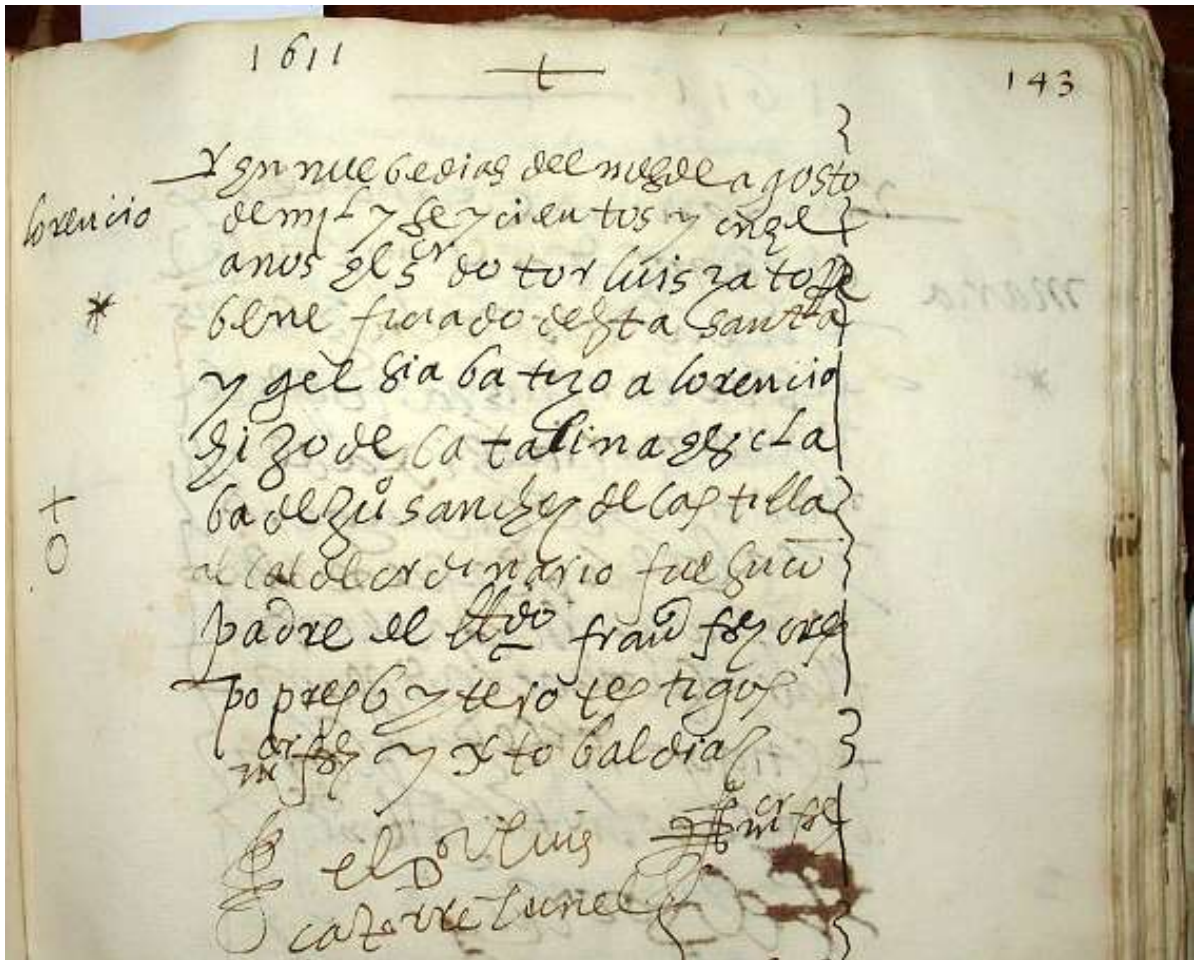 1611
143
lorencio
y en nuebe dias del mes de agosto
de mil y seycientos y onze
anos el sr dotor luis zatorre
beneficiado desta santa
ygelsia batizo a lorencio
hizo de catalina escla
ba de ju sanchez de castilla
alcalde ordinario fue su
padre el lldo franco frz cres
po presbytero testigos
y xtobal diaz
el Dor luis